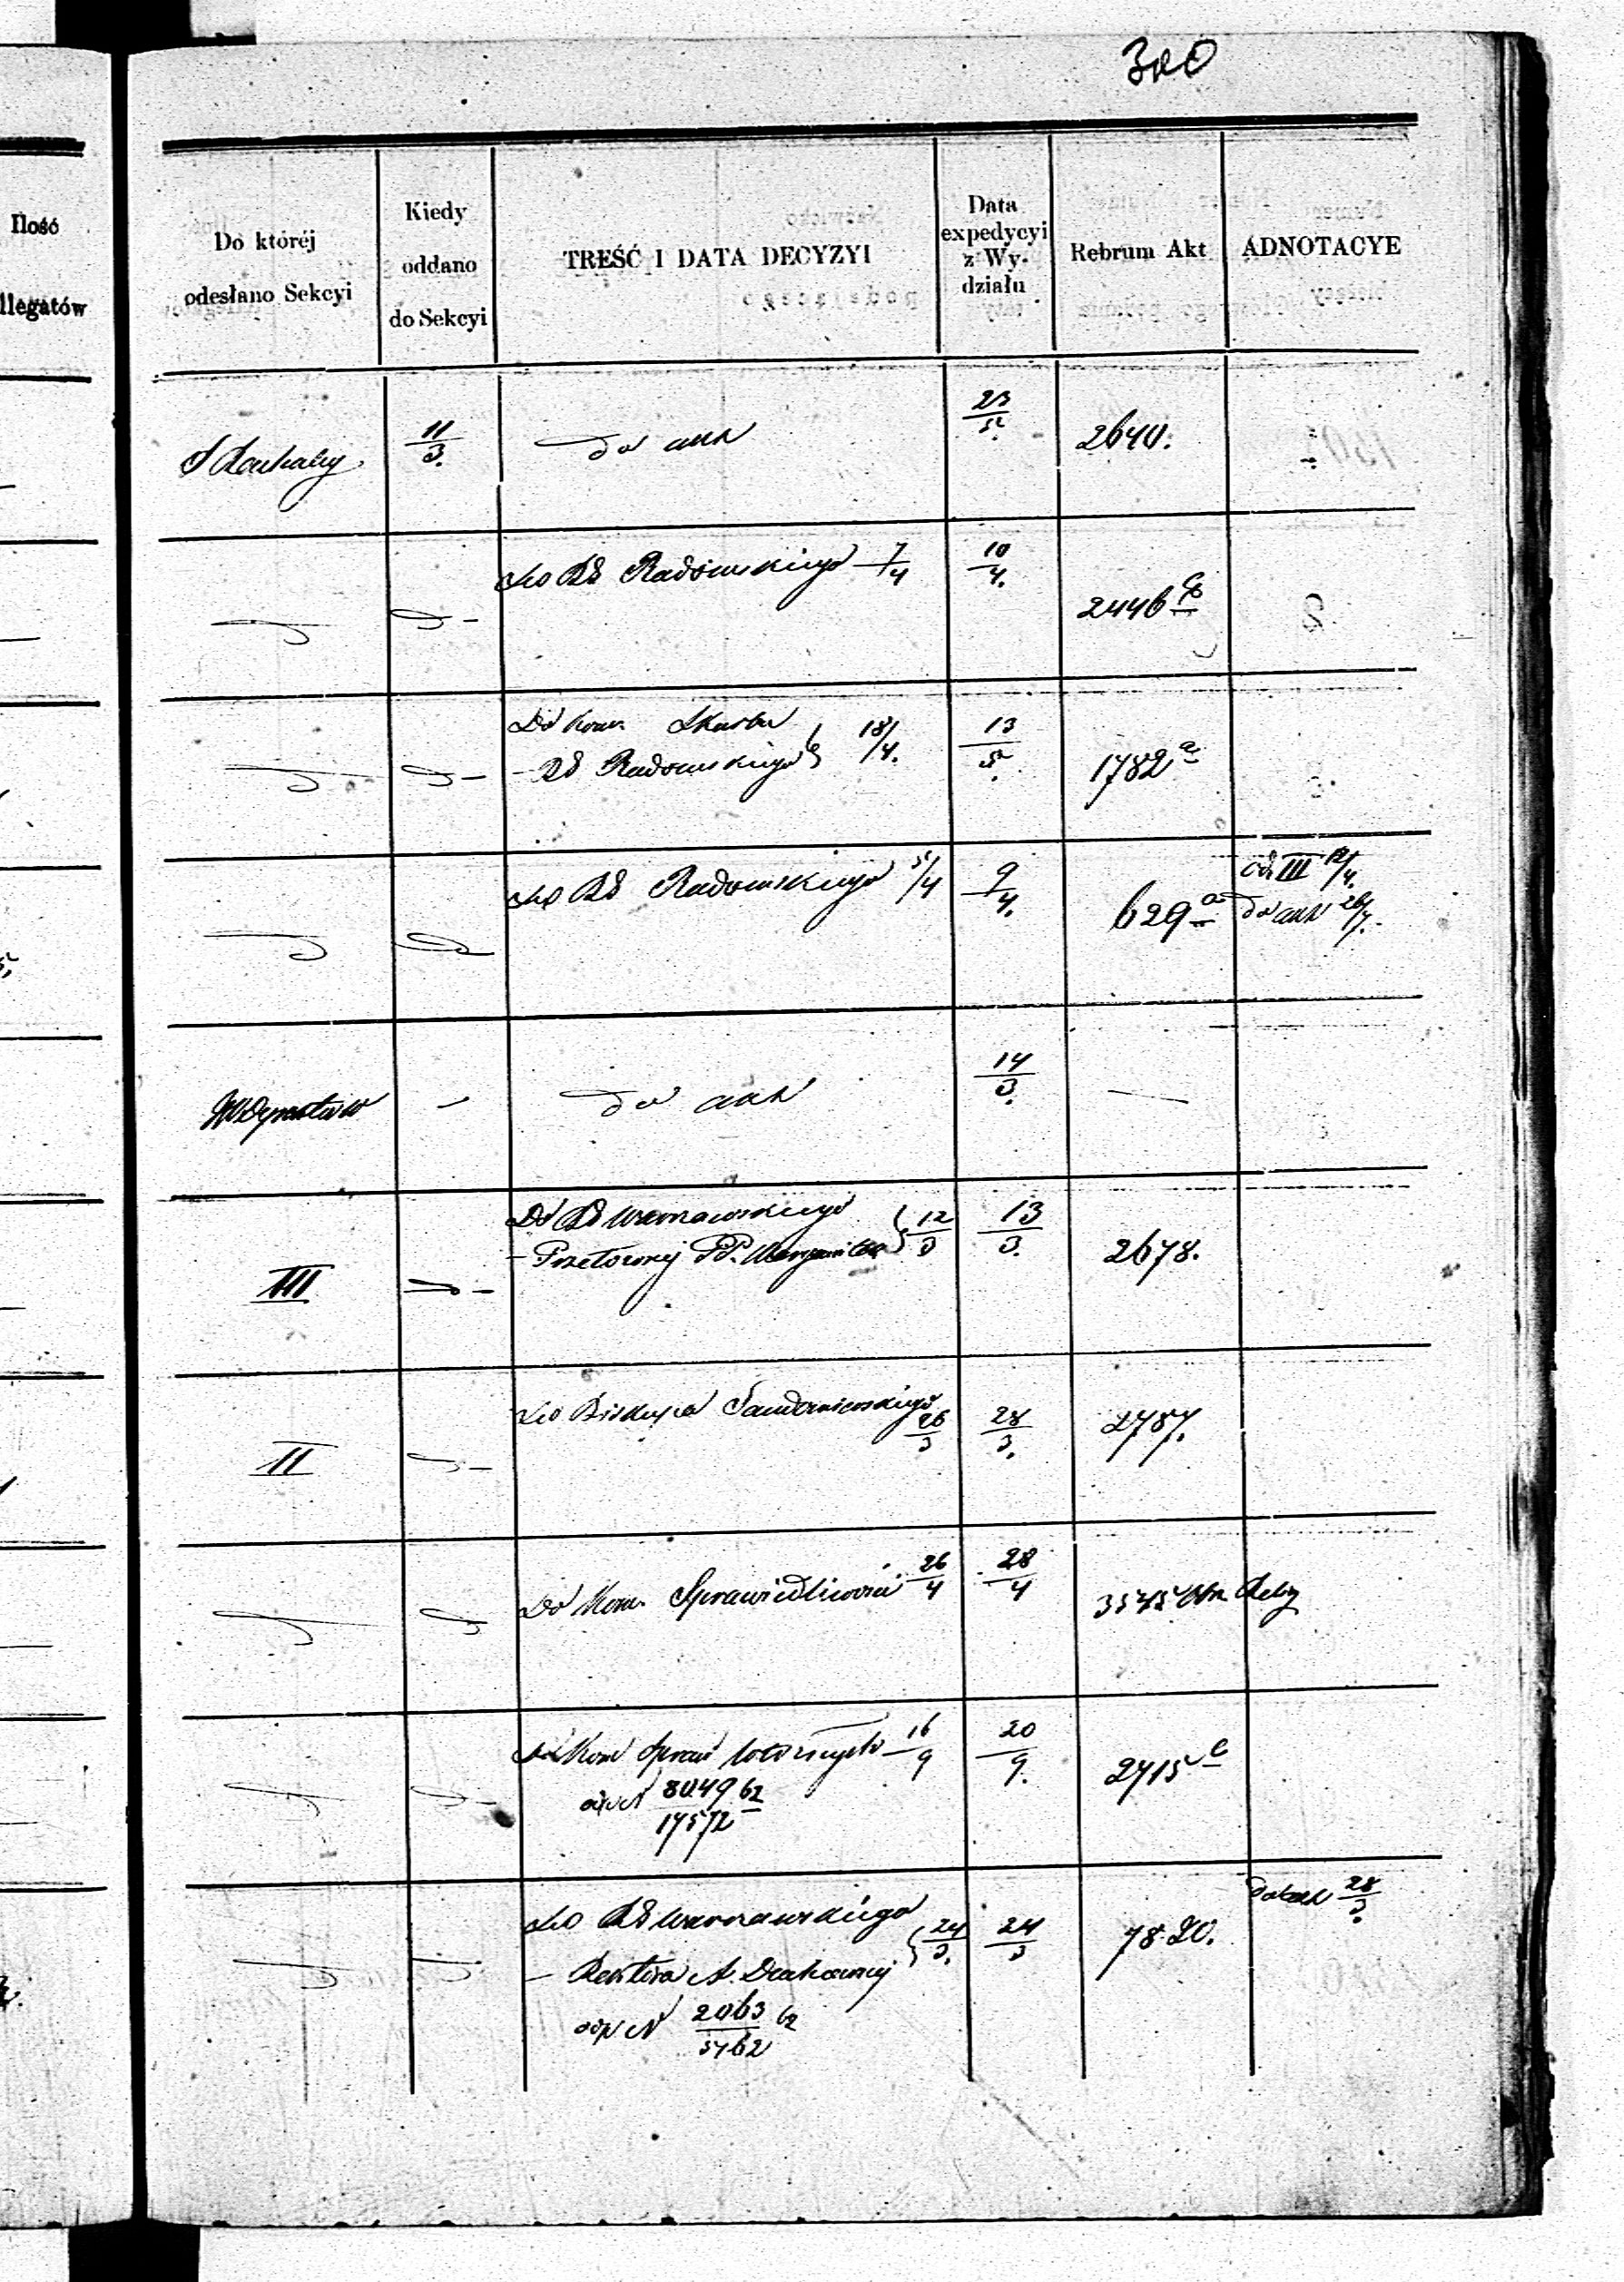 300
Ilość
llegatów
Do któréj
odesłano Sekcyi
Kiedy
oddano
do Sekcyi
TREŚĆ I DATA DECYZYI
Data
expedycyi
z Wy-
działu
Rebrum Akt
ADNOTACYE
11/3.
do akt
23/5.
2640.
Do RG Radomskiego 7/4
10/4.
2446
Do Kom. Skarbu
- RG Radomskiego 18/4.
13/5.
1782 a
Do RG Radomskiego 5/4
9/4.
629 a
od III 12/4.
do akt
do akt
14/3.
III
Do RG Warszawskiego
- Przełożonej PP. 12/3
13/3.
2678.
II
Do Biskupa Sandomierskiego
26/3
28/3.
2787.
Do Kom. Sprawiedliwości 26/4
28/4
3545
Do Kom Spraw 16/9
20/9.
2415
od N 8049/17572 62
Do RG Warszawskiego
- Rektora A. Duchownej 24/3.
24/3
78.20.
do akt 28/3.
od N 2063/5762 62